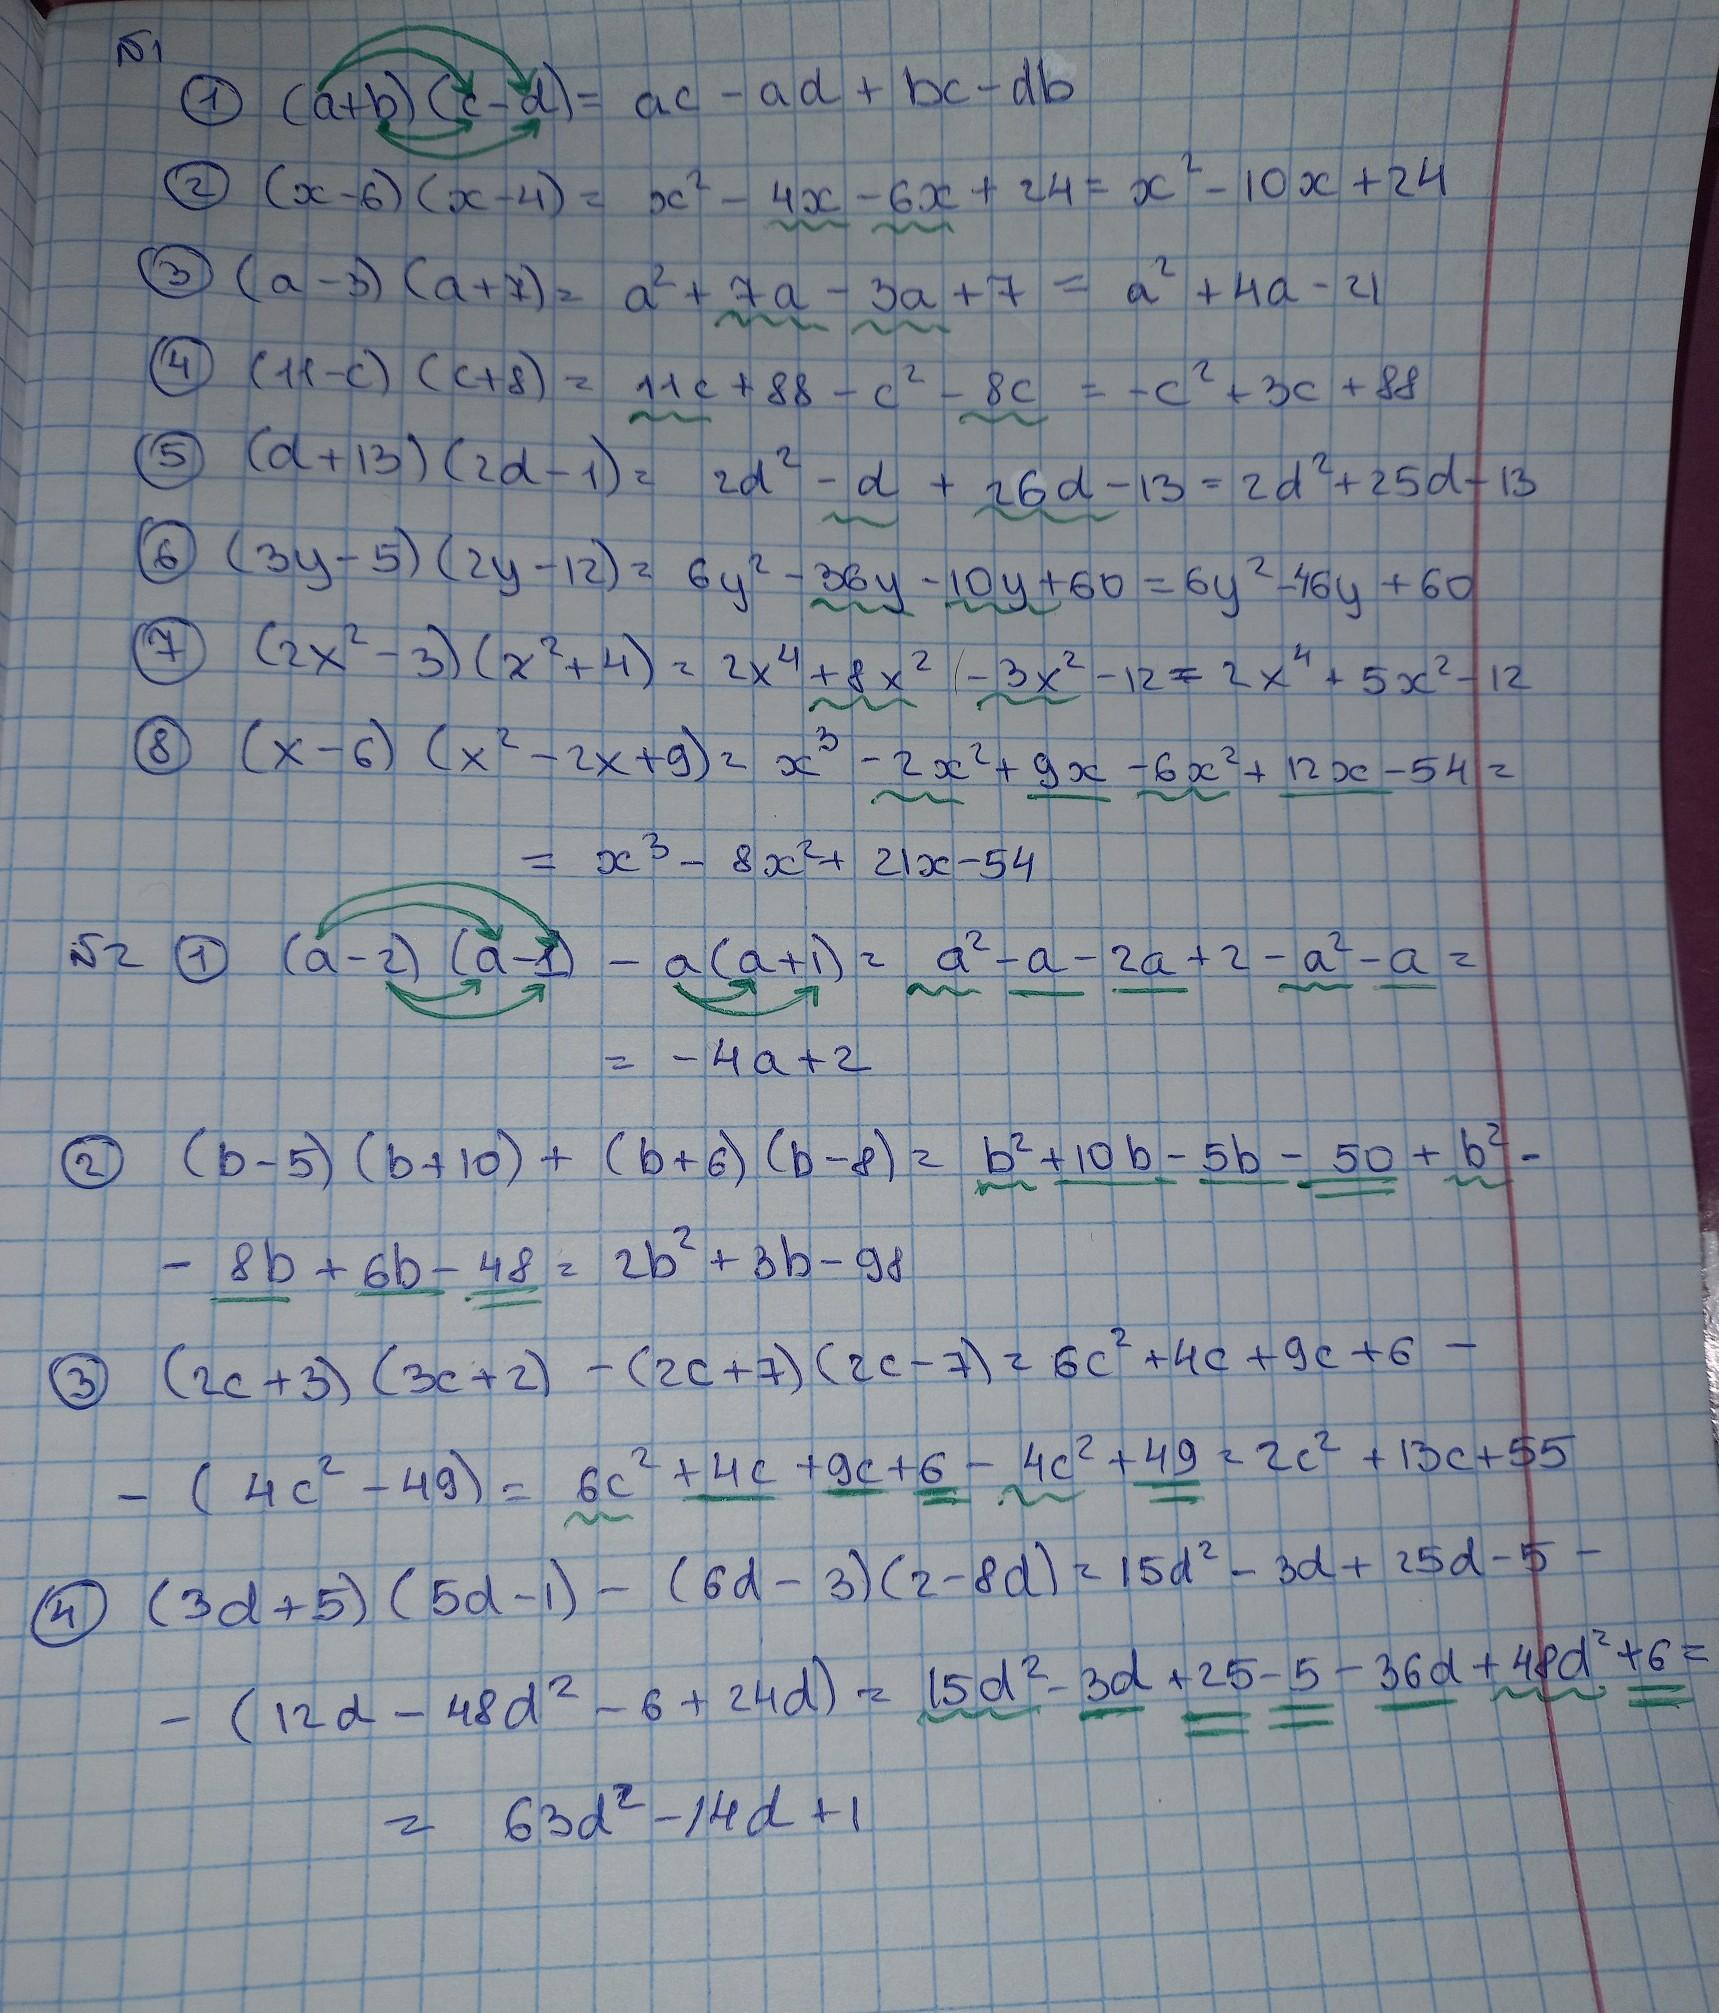 №1
① (a+b)(c-d)= ac - ad + bc - db
② (x-6)(x-4)= x² - 4x - 6x + 24 = x² - 10x + 24
③ (a-3)(a+7)= a² + 7a - 3a + 7 = a² + 4a - 21
④ (11-c)(c+8)= 11c + 88 - c² - 8c = -c² + 3c + 88
⑤ (d+13)(2d-1)= 2d² - d + 26d - 13 = 2d² + 25d - 13
⑥ (3y-5)(2y-12)= 6y² - 36y - 10y + 60 = 6y² - 46y + 60
⑦ (2x²-3)(x²+4)= 2x⁴ + 8x² - 3x² - 12 = 2x⁴ + 5x² - 12
⑧ (x-6)(x²-2x+9)= x³ - 2x² + 9x - 6x² + 12x - 54 =
= x³ - 8x² + 21x - 54
№2 ① (a-2)(a-1) - a(a+1)= a² - a - 2a + 2 - a² - a =
= -4a + 2
② (b-5)(b+10) + (b+6)(b-8)= b² + 10b - 5b - 50 + b² -
- 8b + 6b - 48 = 2b² + 3b - 98
③ (2c+3)(3c+2) - (2c+7)(2c-7)= 6c² + 4c + 9c + 6 -
- (4c² - 49) = 6c² + 4c + 9c + 6 - 4c² + 49 = 2c² + 13c + 55
④ (3d+5)(5d-1) - (6d-3)(2-8d)= 15d² - 3d + 25d - 5 -
- (12d - 48d² - 6 + 24d) = 15d² - 3d + 25 - 5 - 36d + 48d² + 6 =
= 63d² - 14d + 1